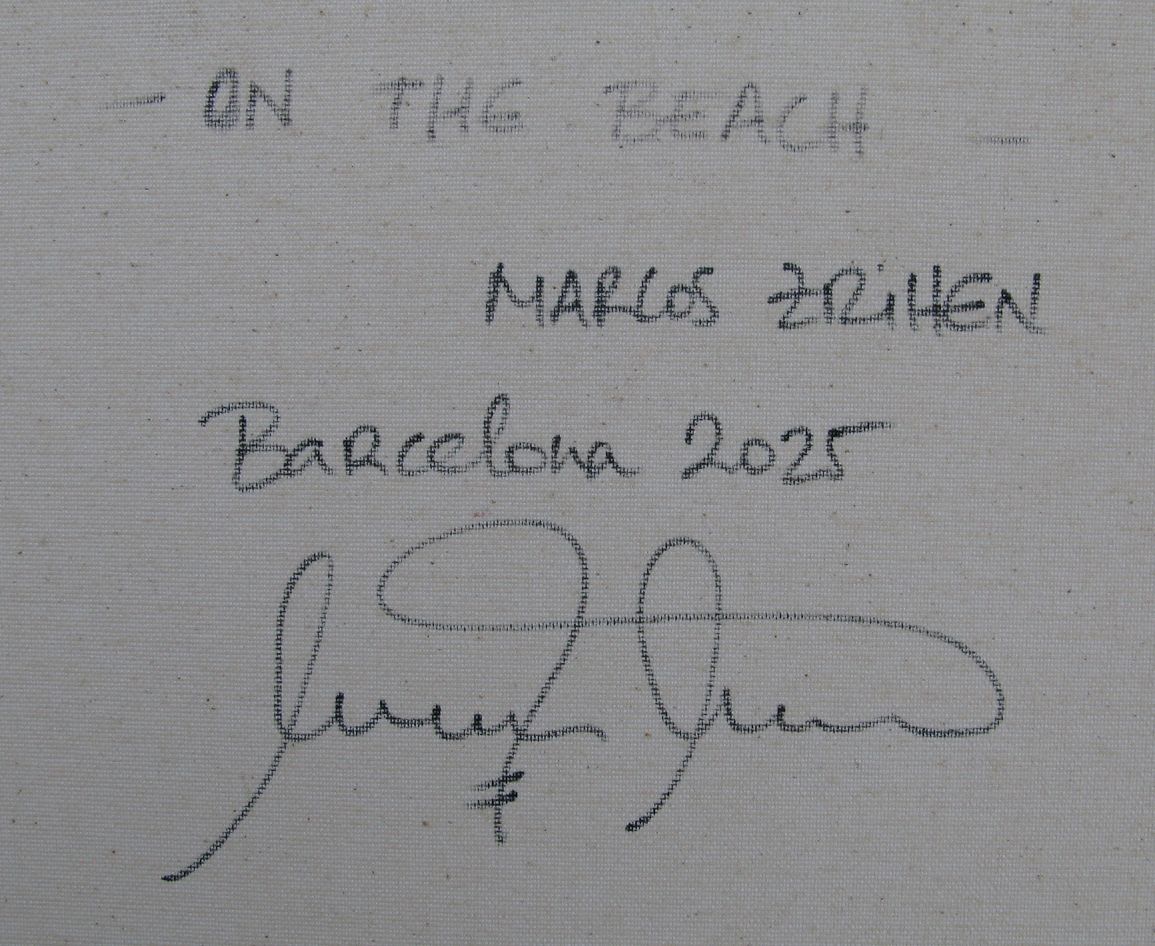 - ON THE BEACH -
MARCOS ZRiHEN
Barcelona 2025